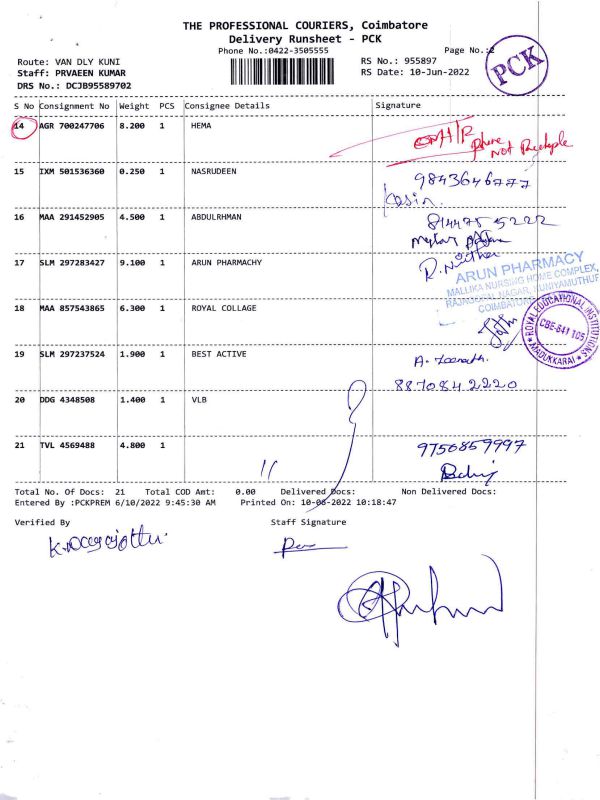 THE PROFESSIONAL COURIERS, Coimbatore
Delivery Runsheet - PCK
Phone No.:0422-3505555
Page No.:2
PCK
Route: VAN DLY KUNI
RS No.: 955897
Staff: PRVAEEN KUMAR
RS Date: 10-Jun-2022
DRS No.: DCJB95589702
S No Consignment No Weight PCS Consignee Details Signature
14 AGR 700247706 8.200 1 HEMA
Phone
Not
15 IXM 501536360 0.250 1 NASRUDEEN
9843646777
16 MAA 291452905 4.500 1 ABDULRHMAN
8144755222
17 SLM 297283427 9.100 1 ARUN PHARMACHY
ARUN PHARMACY
MALLIKA NURSING HOME COMPLEX,
RAJAGOPAL NAGAR, KUNIYAMUTHUR
COIMBATORE
18 MAA 857543865 6.300 1 ROYAL COLLAGE
ROYAL EDUCATIONAL INSTITUTIONS
CBE-641 105
MADUKKARAI
19 SLM 297237524 1.900 1 BEST ACTIVE
8870842220
20 DDG 4348508 1.400 1 VLB
21 TVL 4569488 4.800 1
9756859997
Total No. Of Docs: 21 Total COD Amt: 0.00 Delivered Docs: Non Delivered Docs:
Entered By :PCKPREM 6/10/2022 9:45:30 AM Printed On: 10-06-2022 10:18:47
Verified By
Staff Signature